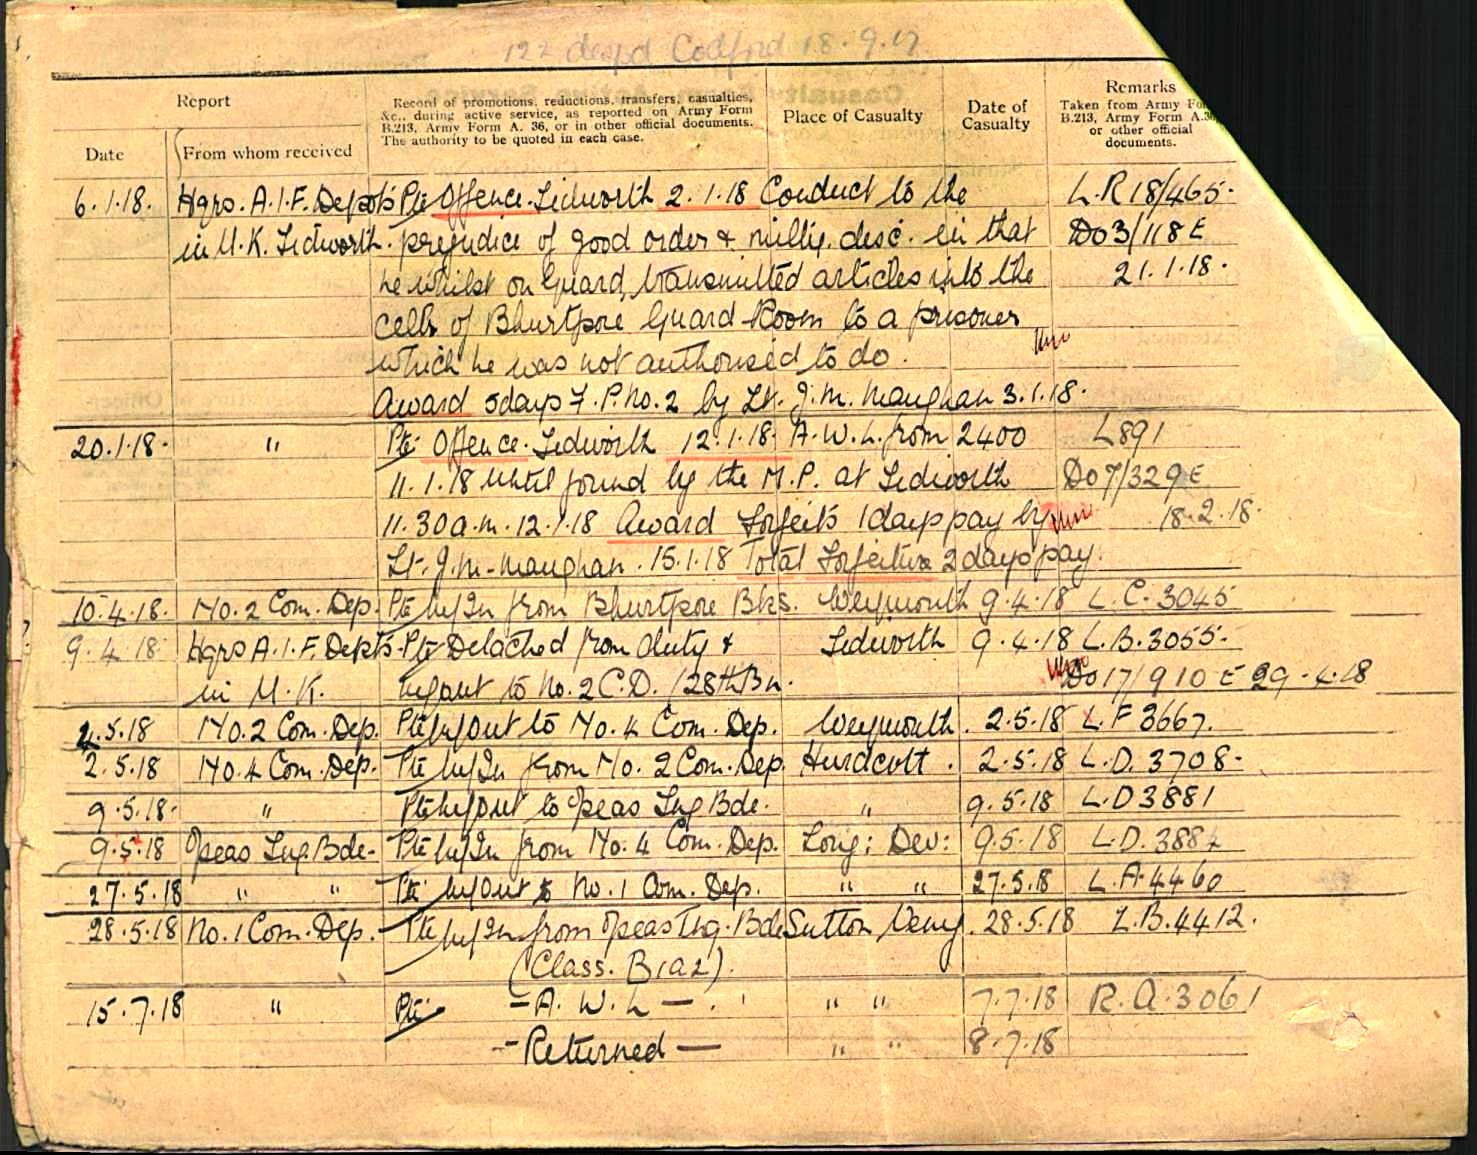 122 desp'd Codford 18.9.17.
Report
Record of promotions, reductions, transfers, casualties, &c., during active service, as reported on Army Form B.213, Army Form A. 36, or in other official documents. The authority to be quoted in each case.
Place of Casualty
Date of Casualty
Remarks
Taken from Army For B.213, Army Form A.36, or other official documents.
Date
From whom received
6.1.18. Hqrs. A.I.F. Depots Pte Offence. Tidworth 2.1.18 Conduct to the L.R 18/465.
in U.K. Tidworth. prejudice of good order & milty. disc. in that Do3/118E
he whilst on Guard, transmitted articles into the 21.1.18.
cells of Bhurtpore Guard Room to a prisoner
which he was not authorised to do.
Award 5days F.P. No.2 by Lt. J.M. Maughan 3.1.18.
20.1.18. " Pte Offence. Tidworth 12.1.18. A.W.L. from 2400 L891
11.1.18 until found by the M.P. at Tidworth Do7/329E
11.30 a.m. 12.1.18 Award Forfeits 1days pay by 18.2.18.
Lt. J.M. Maughan. 15.1.18 Total Forfeiture 2 days pay.
10.4.18. No.2 Com. Dep. Pte M/In from Bhurtpore Bks. Weymouth 9.4.18 L.C. 3045
9.4.18 Hqrs A.I.F. Depts. Pte Detached from duty & Tidworth 9.4.18 L.B. 3055.
in U.K. M/out to No.2 C.D. /28th Bn. Do17/910E 29.4.18
2.5.18 No.2 Com. Dep. Pte M/out to No.4 Com. Dep. Weymouth. 2.5.18 L.F 3667.
2.5.18 No.4 Com. Dep. Pte M/In from No. 2 Com. Dep Hurdcott. 2.5.18 L.D. 3708.
9.5.18. " Pte M/out to O'seas Trg Bde. " 9.5.18 L.D 3881
9.5.18 O'seas Trg. Bde. Pte M/In from No.4 Com. Dep. Long: Dev: 9.5.18 L.D. 3884
27.5.18 " " Pte M/Out to No.1 Com. Dep. " " 27.5.18 L.A.4460
28.5.18 No.1 Com. Dep. Pte M/In from O'seas Trg. Bde Sutton Veny. 28.5.18 L.B.4412.
(Class. B1a2).
15.7.18 " Pte — A.W.L — . " " 7.7.18 R.A.3061
— Returned — " " 8.7.18